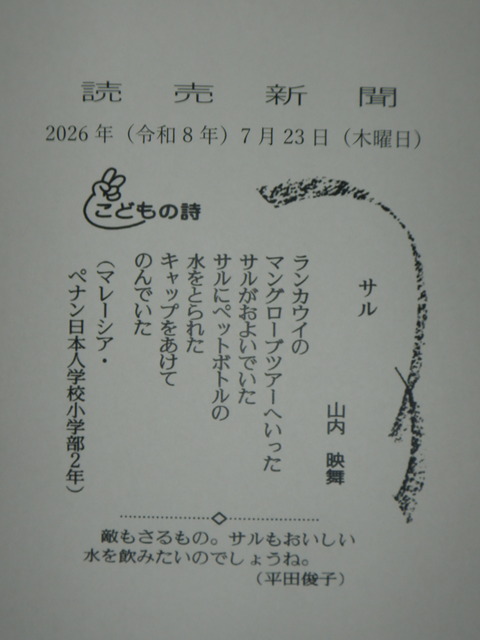 読売新聞
2026年（令和8年）7月23日（木曜日）
こどもの詩
サル
山内 映舞
ランカウイの
マングローブツアーへいった
サルがおよいでいた
サルにペットボトルの
水をとられた
キャップをあけて
のんでいた
（マレーシア・
ペナン日本人学校小学部2年）
敵もさるもの。サルもおいしい
水を飲みたいのでしょうね。
（平田俊子）